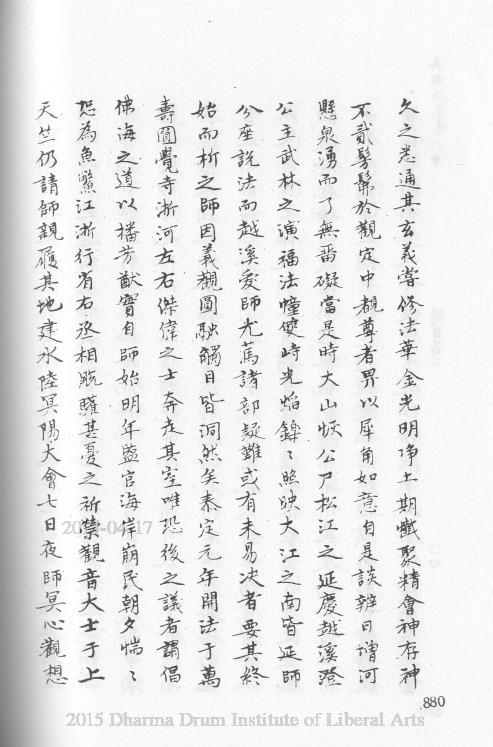 久之悉通其玄義嘗修法華金光明淨土期懺聚精會神存神
不貳髣髴於觀定中覩尊者畀以犀角如意自是談辨日增河
懸泉湧而了無畱礙當是時大山恢公尸松江之延慶越溪澄
公主武林之演福法幢雙峙光焰鏵〻照映大江之南皆延師
分座說法而越溪愛師尤萬諸部疑難或有未易决者要其終
始而析之師因義觀圓駛觸目皆洞然矣泰定元年開法于萬
壽圓覺寺淛河左右傑偉之士奔走其室唯恐後之議者謂倡
佛海之道以播芳猷實自師始明年鹽官海岸崩民朝夕惴〻
恐為魚鱉江淛行省右丞相脫驩甚憂之祈禜觀音大士于上
天竺仍請師親履其地建水陸冥陽大會七日夜師冥心觀想
880
2015 Dharma Drum Institute of Liberal Arts